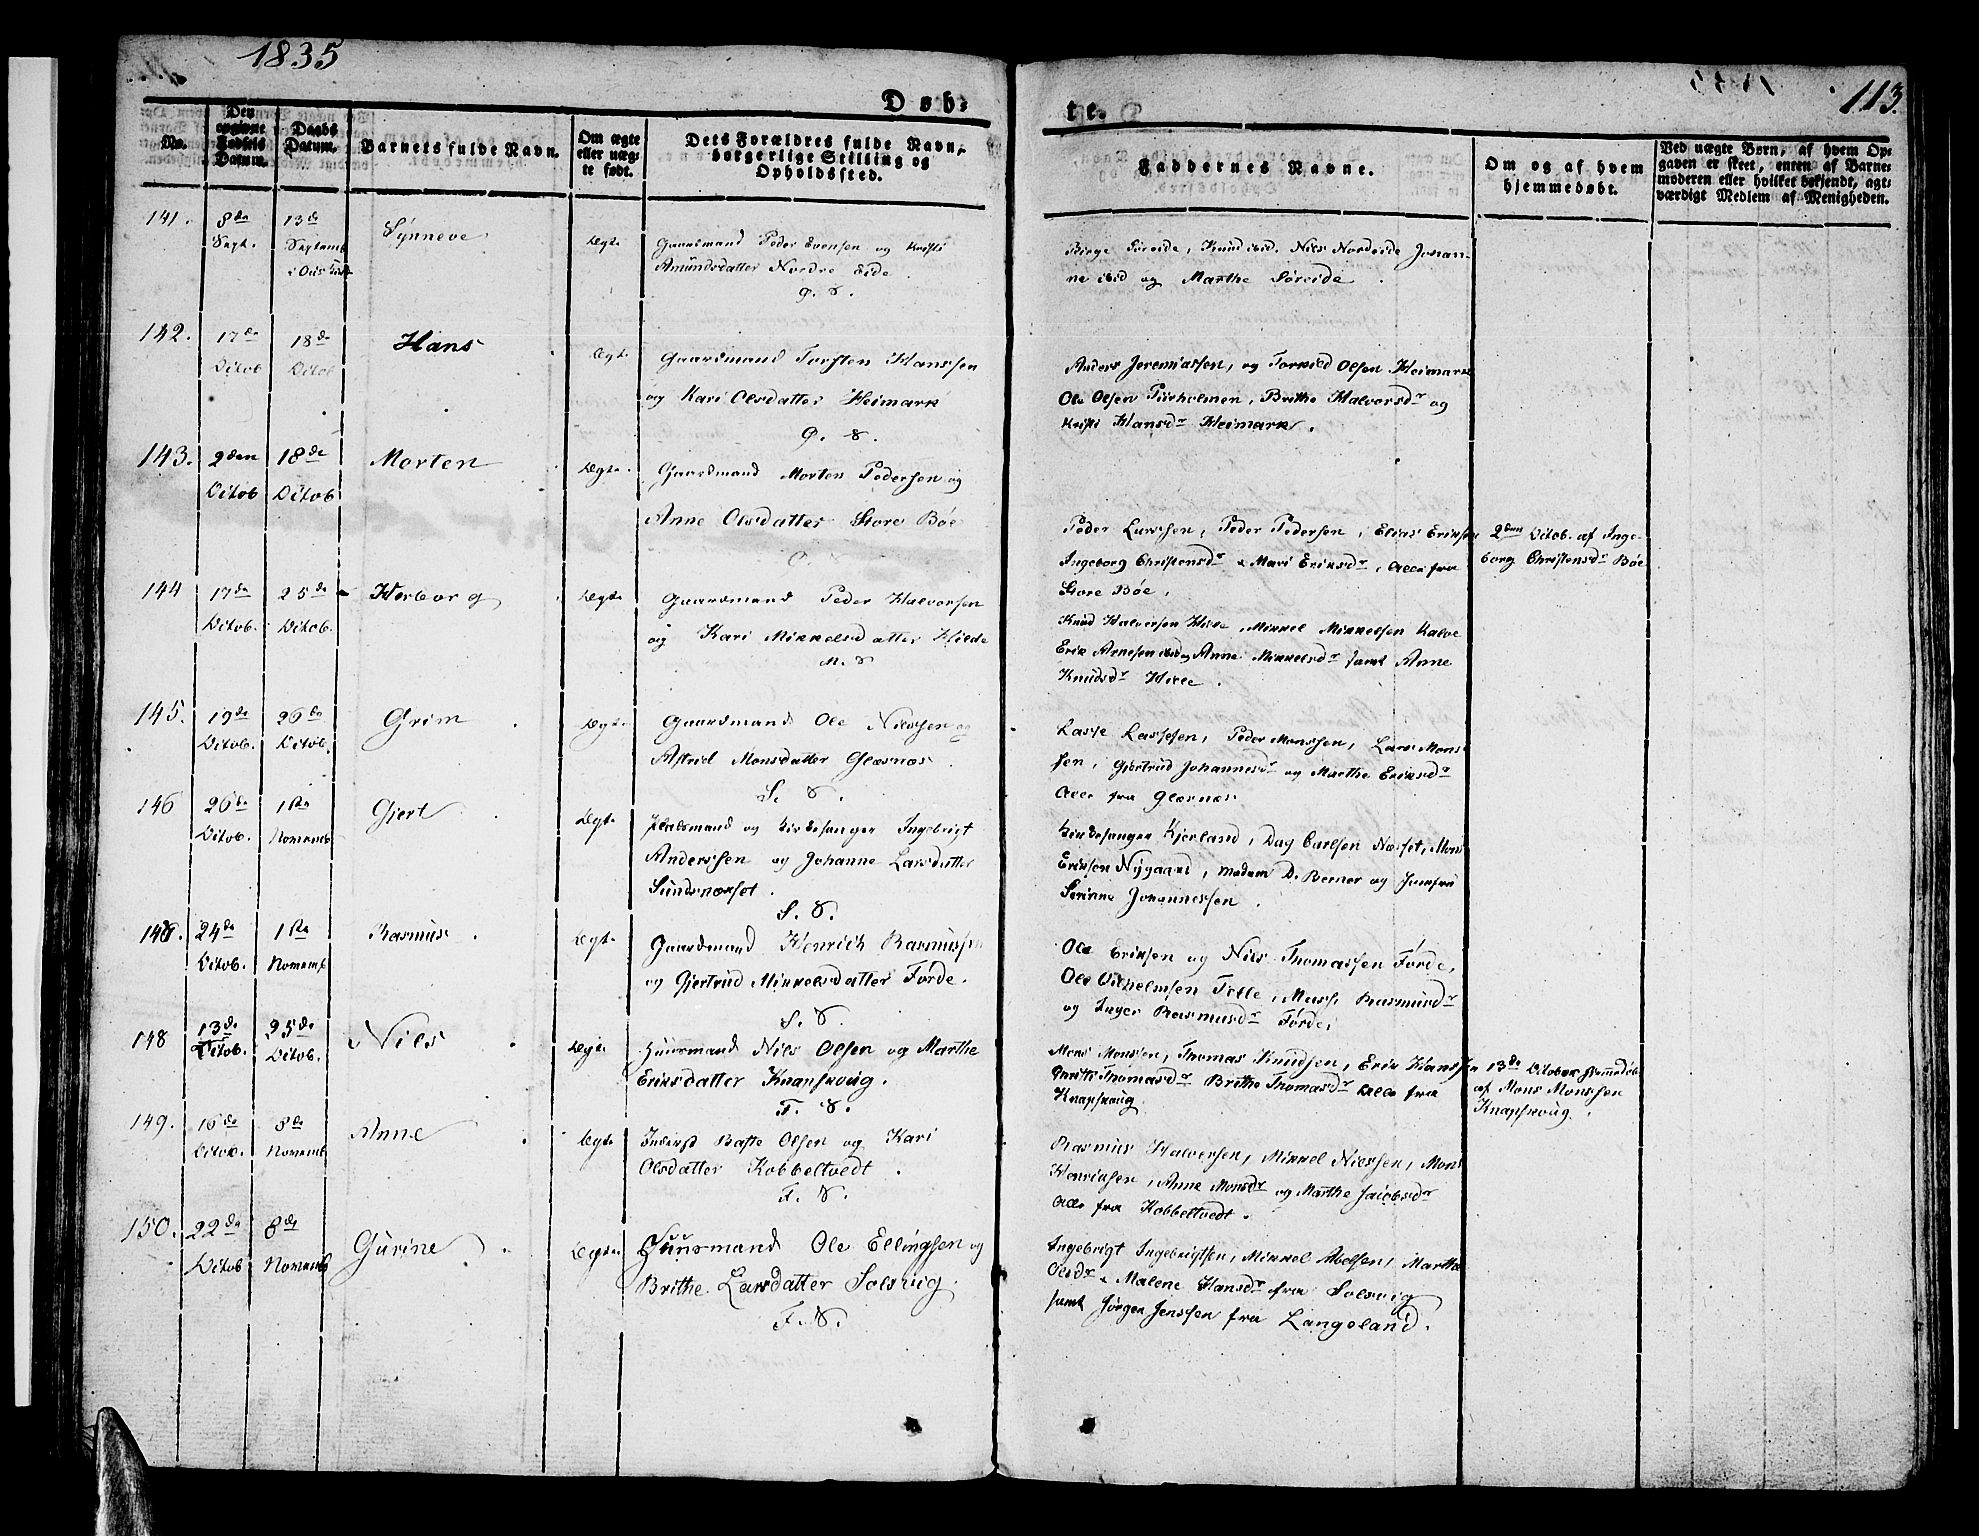 1835
113.
Døb-
te.
No.
Den
opgivne
Fødsels
Datum.
Daabs
Datum.
Barnets fulde Navn.
Om ægte
eller uæg-
te født.
Dets Forældres fulde Navn,
borgerlige Stilling og
Opholdssted.
Faddernes Navne.
Om og af hvem
hjemmedøbt.
Ved uægte Børn, af hvem Op-
gaven er skeet, enten af Barne-
moderen eller hvilket bekjendt, agt-
værdigt Medlem af Menigheden.
141.
8de
Sept.
13de
Septemb
Synneve
Ægte
Gaardmand Peder Svensen og Kristi
Amundsdatter Nordre Eide
Børge Søreide, Knud ibid. Nils Nordeide Johan-
ne ibid og Marthe Søreide.
142.
17de
Octob
18de
Octob
Hans
Ægte
Gaardmand Torsten Hanssen
og Kari Olsdatter Heimark
Anders Jeremiassen, og Torkild Olsen Heimark
Ole Olsen Tueholmen, Brithe Halvorsdr og
Kristi Hansdr Heimark.
143.
2den
Octob
18de
Octob
Morten
Ægte
Gaardmand Morten Pedersen og
Anne Olsdatter Store Bøe
Peder Larssen, Peder Pedersen, Elias Eriksen
Ingeborg Christensdr & Mari Eriksdr, Alle fra
Store Bøe,
2den Octob. af Inge-
borg Christensdr Bøe
144
17de
Octob.
25de
Octob.
Herborg
Ægte
Gaardmand Peder Halvorsen
og Kari Mikkelsdatter Hilde
Knud Halvorsen Hilde, Mikkel Mikkelsen Kalve
Erik Arnesen ibid og Anne Mikkelsdr samt Anne
Knudsdr Hilde.
145.
19de
Octob.
26de
Octob.
Grim
Ægte
Gaardmand Ole Nilssen og
Astrid Monsdatter Glæsnæs.
S. S.
Lasse Lassesen, Peder Monssen, Lars Mons-
sen, Gjertrud Johannesdr og Marthe Eriksdr
Alle fra Glæsnæs
146
26de
Octob.
1ste
Novemb
Gjert
Ægte
Pladsmand og Kirkesanger Ingebrigt
Anderssen og Johanne Larsdatter
Sundsnæset.
S. S.
Kirkesanger Kjerland, Dag Carlsen Næset, Mons
Eriksen Nygaard, Madam D. Berner og Jomfru
Serinne Johannessen.
148.
24de
Octob.
1ste
Novemb
Rasmus.
Ægte
Gaardmand Henrich Rasmussen
og Gjertrud Mikkelsdatter Førde.
S. S.
Ole Eriksen og Nils Thomassen Førde,
Ole Vilhelmsen Telle, Massi Rasmusdr
og Inger Rasmusdr Førde,
148
13de
Octob.
25de
Octob.
Nils
Ægte
Huusmand Nils Olsen og Marthe
Eriksdatter Knapskoug.
F. S.
Mons Monssen, Thomas Knudsen, Erik Hanssen
Thomasdr Brithe Thomasdr Alle fra
Knapskoug
13de October hjemmedøbt
af Mons Monssen
Knapskoug.
149.
16de
Octob.
8de
Novemb
Anne
Ægte
Inderst Baste Olsen og Kari
Olsdatter Kobbeltvedt.
F. S.
Rasmus Halvorsen, Mikkel Nilssen, Mons
Henriksen, Anne Monsdr og Marthe Jacobsdr
Alle fra Kobbeltvedt.
150.
22de
Octob
8de
Novemb
Gurine
Ægte
Huusmand Ole Ellingsen og
Brithe Larsdatter Solsvig.
F. S.
Ingebrigt Ingebrigtsen, Mikkel Abelsen, Marthe
Olsdr & Malene Hansdr fra Solsvig
samt Jørgen Jenssen fra Langeland.